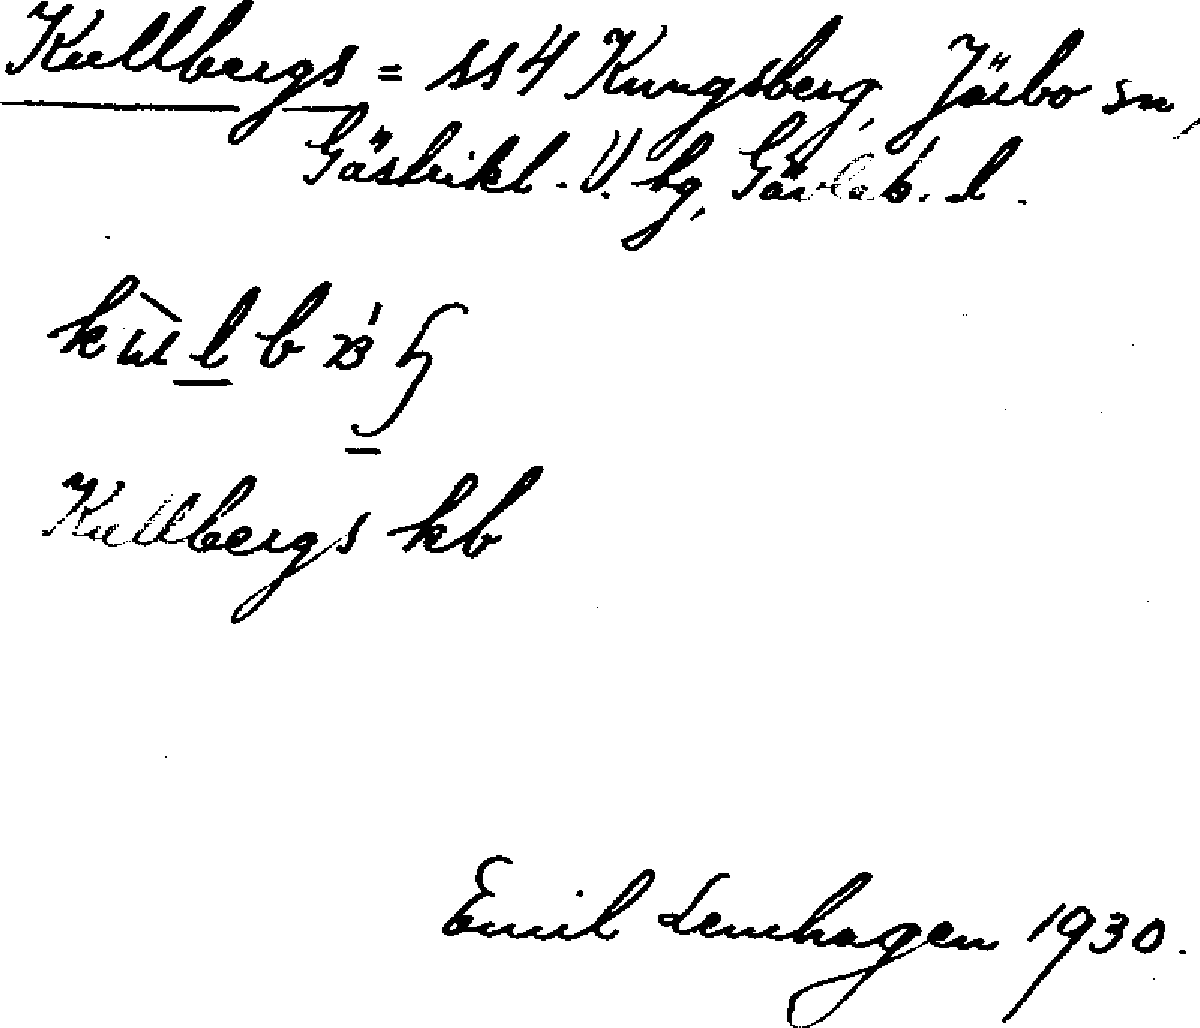 Kullbergs = ss 4 Kungsberg, Järbo sn,
Gästrikl. V. hg, Gävleb. l.
Kullbergs kb
Emil Lemhagen 1930.